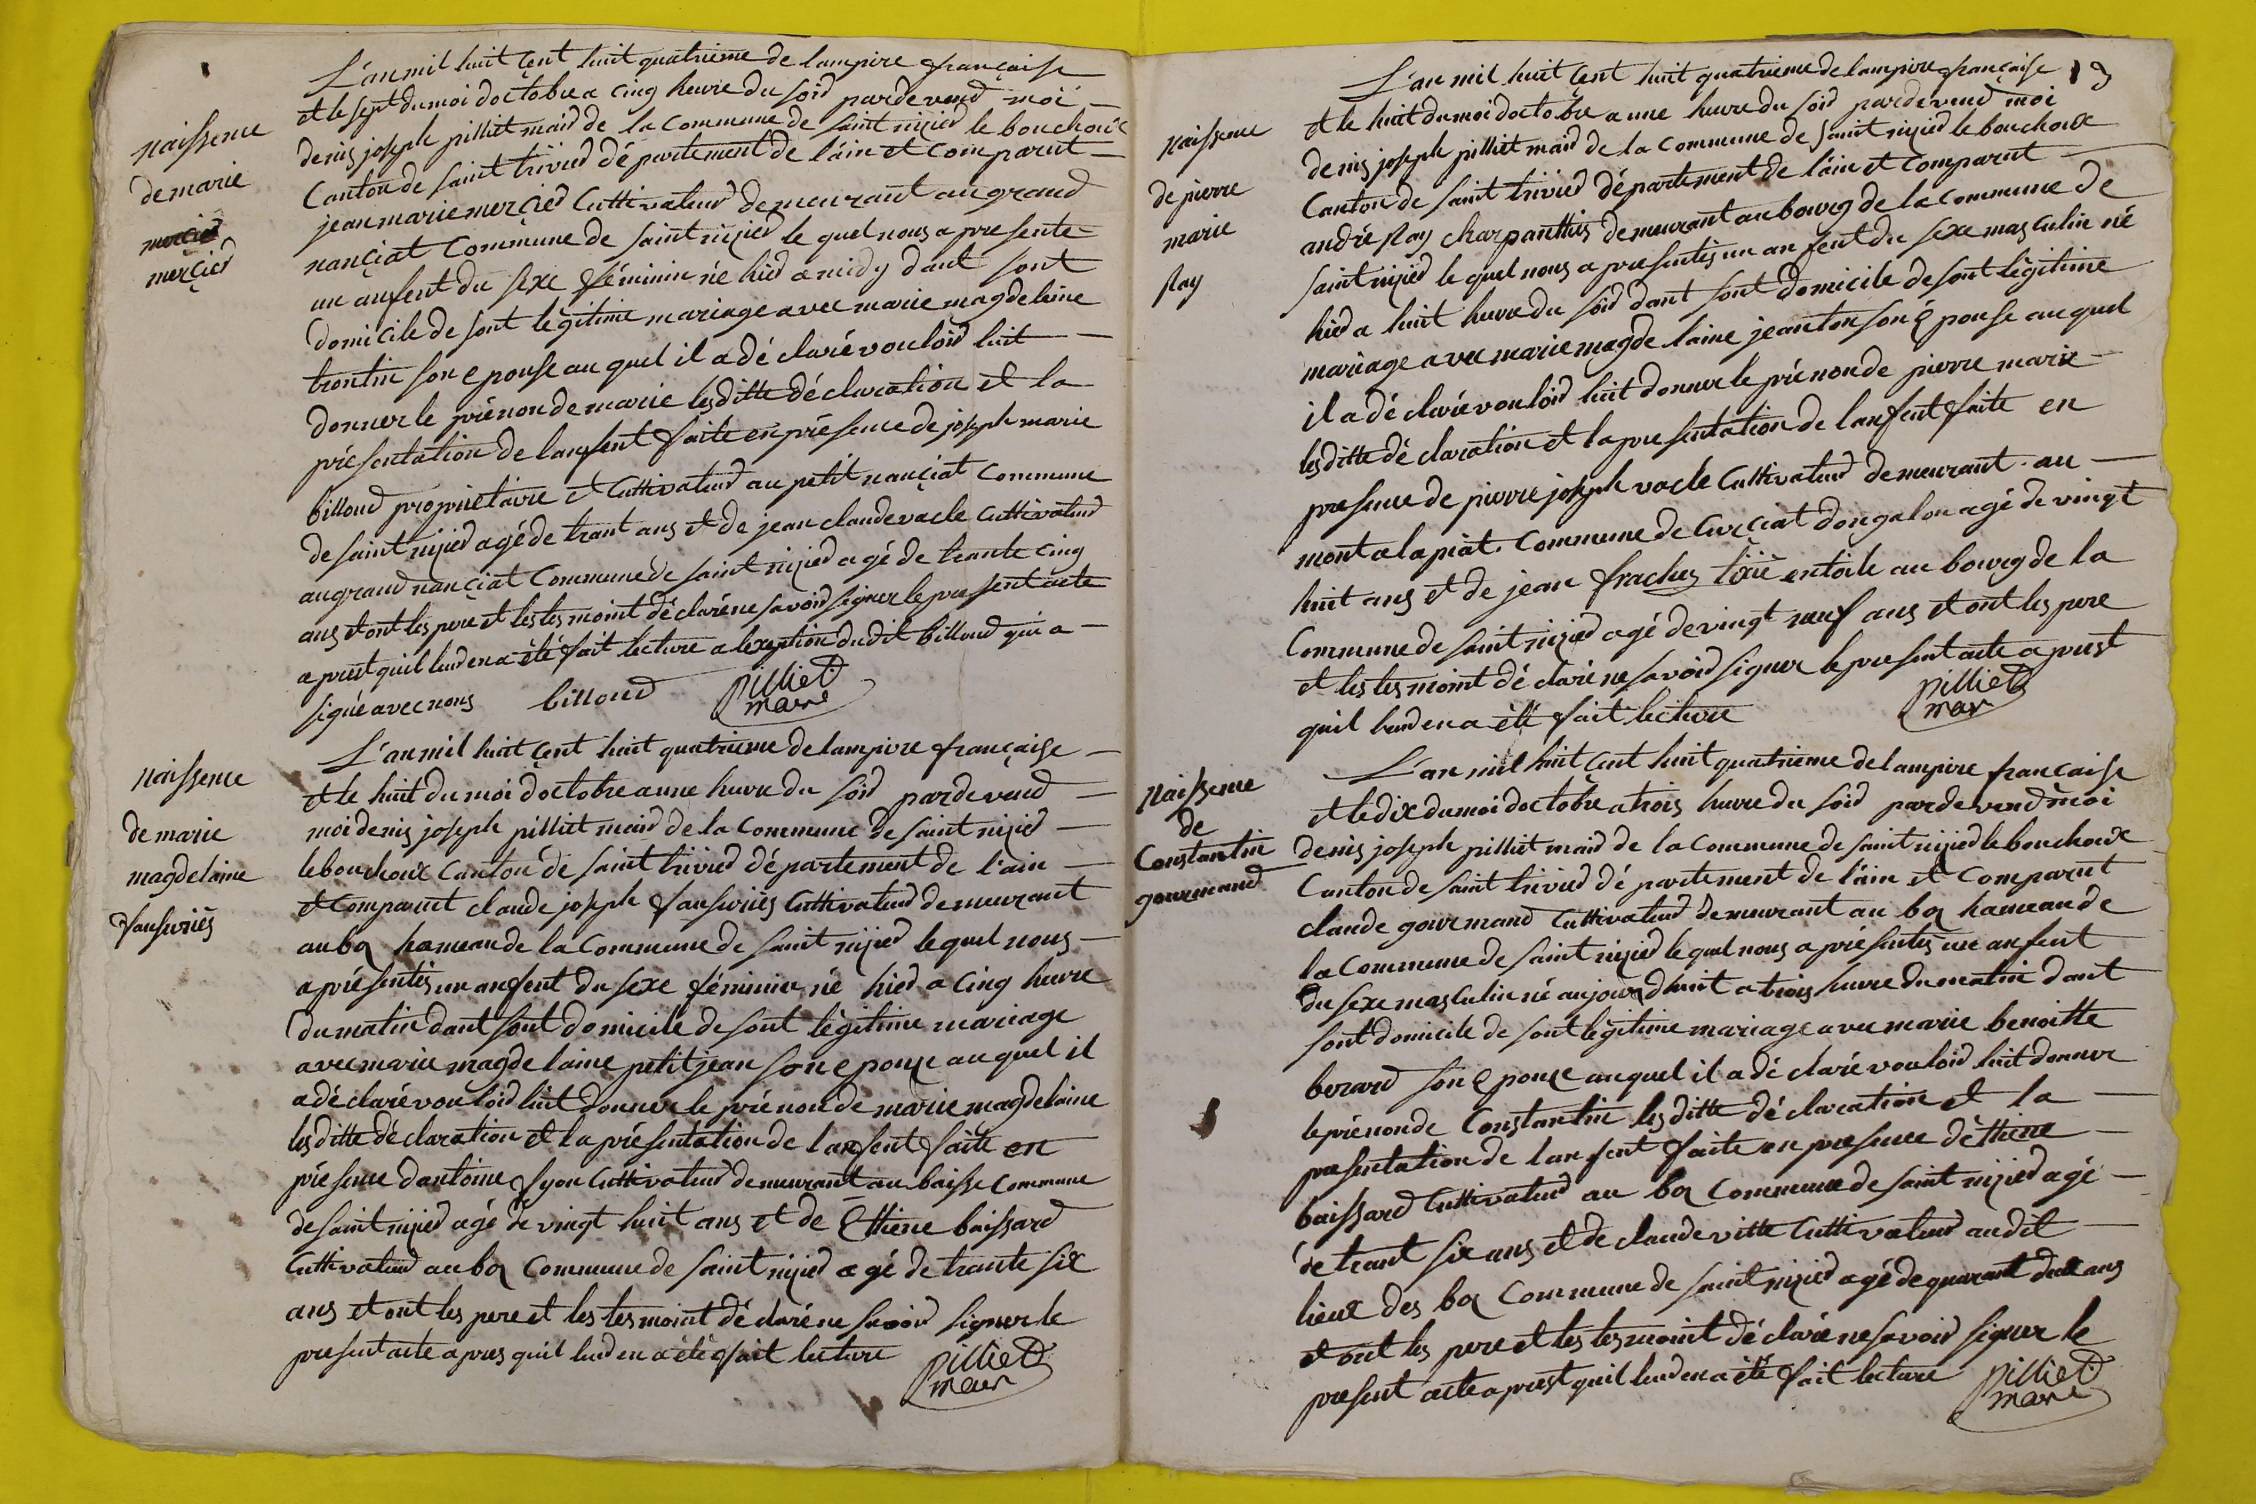 L'an mil huit cent huit quatrieme de lampire française
et le sept du moi doctobre a cinq heure du soir pardevend moi
naissence
denis joseph pilliet maid de la commune de saint nizied le bouchoux
de marie
Canton de saint trivied département de l'ain et comparut
jean marie mercied Cultivateur demeurant au grand
mercied
nançiat commune de saint nizied le quel nous a presente
un anfent du sexe féminin né hied a midy dant sont
domicile de sont légitime mariage avec marie magdelaine
trontin son epouse au quel il a déclaré vouloid luit
donner le prénon de marie lesditte déclaration et la
présentation de lanfent faite en présence de joseph marie
billoud proprietaire et Cultivateur au petit nançiat commune
de saint nizied agé de trant ans et de jean claude vacle Cultivateur
au grand nançiat Commune de saint nizied agé de trante cinq
ans et ont les pere et les tesmoint déclaré ne savoid signer le present acte
a prest quil leud en a été fait lecture a lexeption dudit billoud qui a
signé avec nous billoud pilliet
maire
L'an mil huit cent huit quatrieme de lampire française
naissence
et le huit du moi doctobre a une heure du soid pardevend
de marie
moi denis joseph pilliet maid de la commune de saint nizied
magdelaine
le bouchoux Canton de saint trivied département de l'ain
et comparut claude joseph Cultivateur demeurant
au boz hameau de la Commune de saint nizied lequel nous
a présentés un anfent du sexe féminin né hied a cinq heure
du matin dant sont domicile de sont légitime mariage
avec marie magdelaine petitjean son epouse au quel il
a déclaré vouloid luit donner le prénon de marie magdelaine
lesditte déclaration et la présentation de lanfent faite en
présence dantoine Cultivateur demeurant au baisse commune
de saint nizied agé de vingt huit ans et de Ethiene baissard
Cultivateur au boz Commune de saint nizied agé de trante six
ans et ont les pere et les tesmoint déclaré ne savoid signer le
present acte apres quil leud en a été fait lecture pilliet
maire
L'an mil huit cent huit quatrieme de lampire française
et le huit du moi doctobre a une heure du soid pardevend moi
naissence
denis joseph pilliet maid de la commune de saint nizied le bouchoux
de pierre
Canton de saint trivied département de l'ain et comparut
marie
andré pay charpanthis demeurant au bourg de la commune de
pay
saint nizied le quel nous a presentés un anfent du sexe masculin né
hied a huit heure du soid dant sont domicile de sont légitime
mariage avec marie magdelaine jeanton son épouse au quel
il a déclaré vouloid luit donner le prénon de pierre marie
lesditte déclaration et la presentation de lanfent faite en
presence de pierre joseph vacle Cultivateur demeurant au
mont a la piat Commune de Curçiat dongalou agé de vingt
huit ans et de jean frachez en toile au bourg de la
Commune de saint nizied agé de vingt neuf ans et ont les pere
et les tesmoint déclaré ne savoid signer le present acte a prest
quil leud en a été fait lecture pilliet
maire
L'an mil huit cent huit quatrieme de lampire française
naissence
et le dix du moi doctobre a trois heure du soid pardevend moi
de
Constantin
denis joseph pilliet maid de la commune de saint nizied le bouchoux
gourmand
Canton de saint trivied département de l'ain et comparut
claude gourmand Cultivateur demeurant au boz hameau de
la commune de saint nizied le quel nous a présentés un anfent
du sexe masculin né aujourdhuit a trois heure du matin dant
sont domicile de sont légitime mariage avec marie benoitte
berard son épouse au quel il a déclaré vouloid luit donner
le prénon de Constantin lesditte déclaration et la
presentation de lanfent faite en presence déthiene
baissard Cultivateur au boz Commune de saint nizied agé
de trant six ans et de claude vitte Cultivateur audit
lieux des boz Commune de saint nizied agé de quarant deux ans
et ont les pere et les tesmoint déclaré ne savoid signer le
present acte a prest quil leud en a été fait lecture pilliet
maire